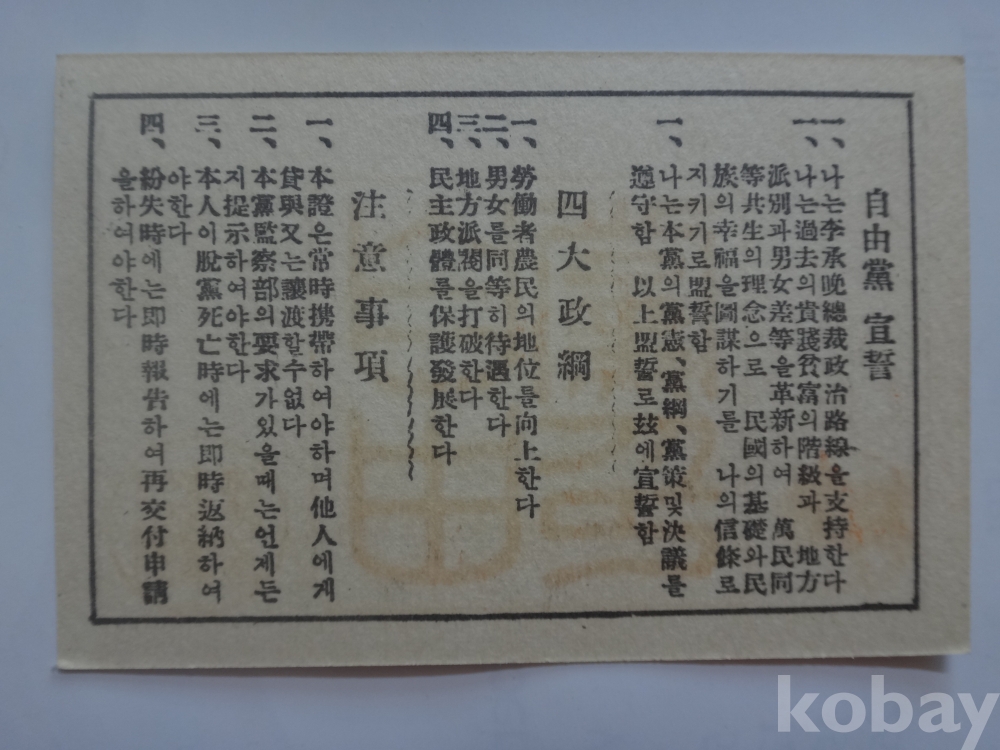 自由黨 宣誓
一、나는李承晩總裁政治路線을支持한다
一、나는過去의貴賤貧富의階級과 地方
派別과男女差等을革新하여 萬民同
等共生의理念으로 民國의基礎와民
族의幸福을圖謀하기를 나의信條로
지키기로盟誓함
一、나는本黨의黨憲、黨綱、黨策및決議를
遵守함 以上盟誓로玆에宣誓함
四大政綱
一、勞働者農民의地位를向上한다
二、男女를同等히待遇한다
三、地方派閥을打破한다
四、民主政體를保護發展한다
注意事項
一、本證은常時携帶하여야하며他人에게
貸與又는讓渡할수없다
二、本黨監察部의要求가있을때는언제든
지提示하여야한다
三、本人이脫黨死亡時에는即時返納하여
야한다
四、紛失時에는即時報告하여再交付申請
을하여야한다
kobay